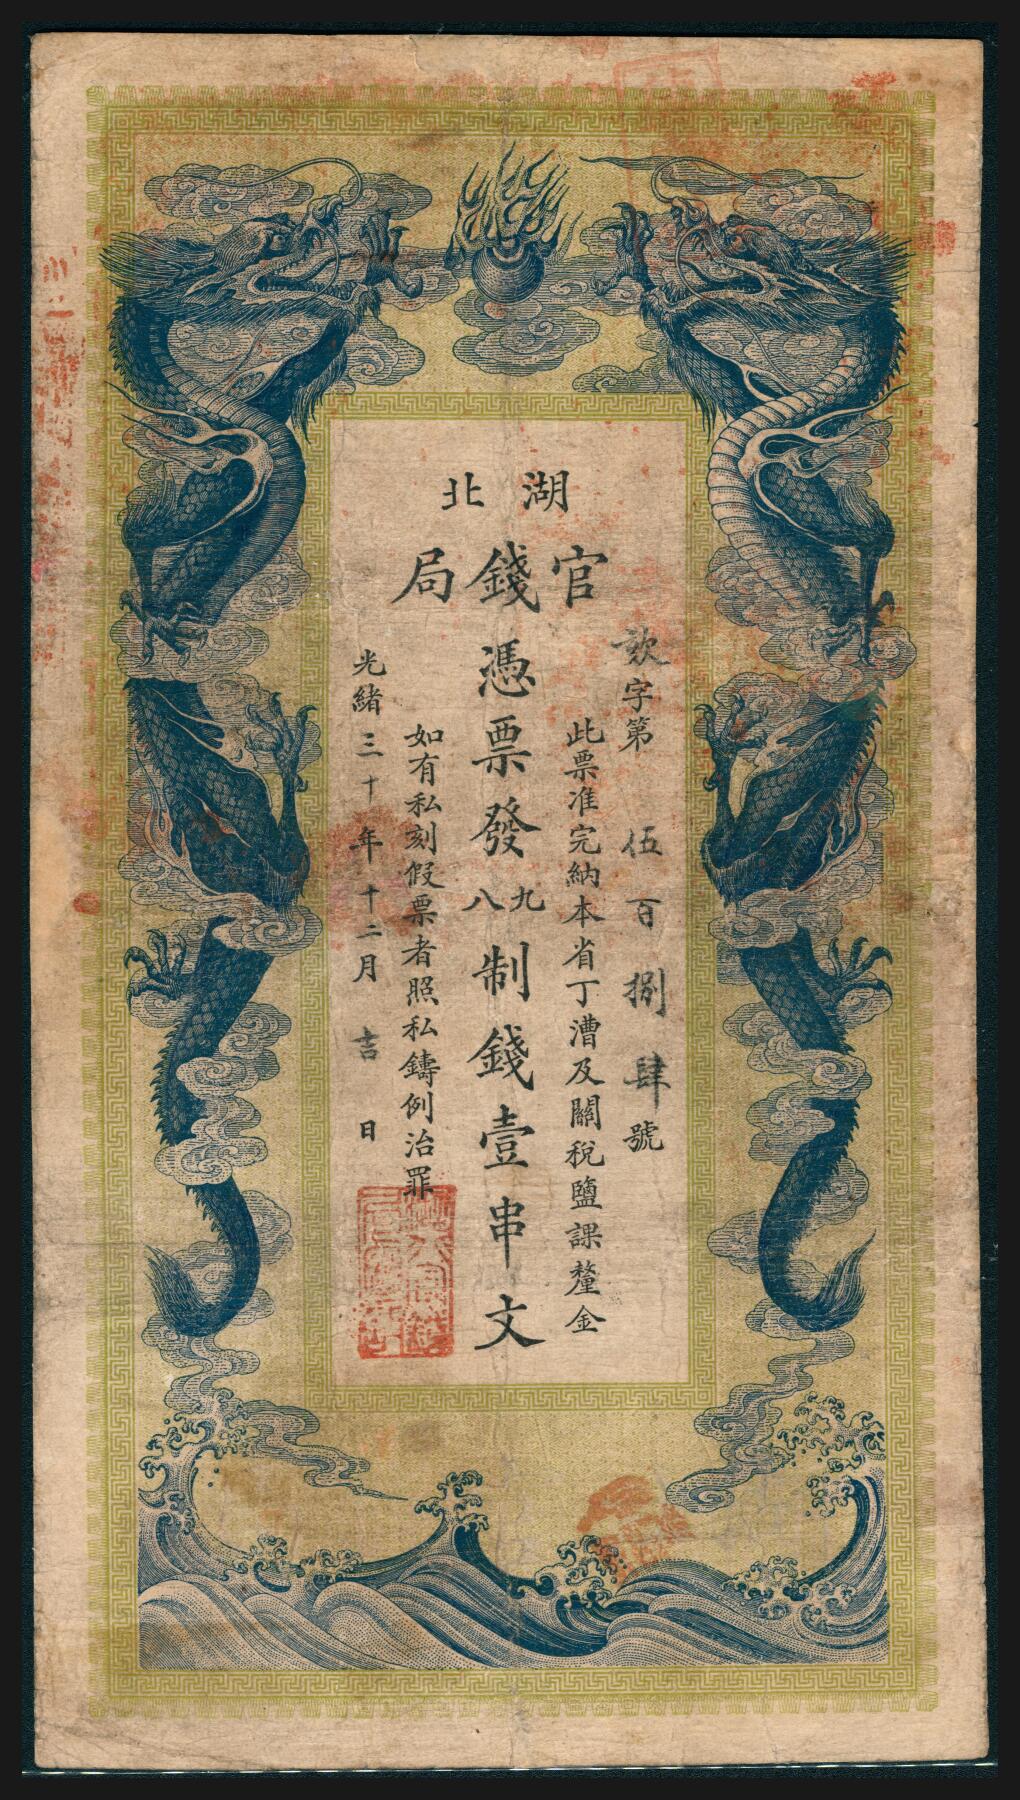 湖北
官錢局
欵字第 伍百捌肆號
此票准完納本省丁漕及關稅鹽課釐金
憑票發九八制錢壹串文
如有私刻假票者照私鑄例治罪
光緒三十年十二月 吉 日